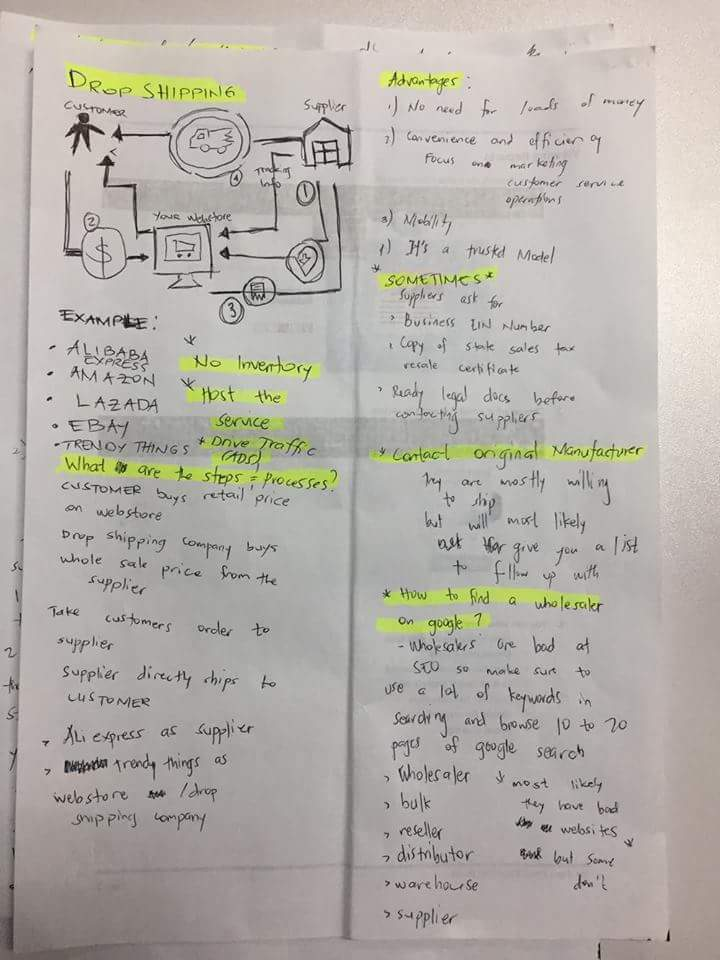 DROP SHIPPING
CUSTOMER
Supplier
4
Tracking
Info
1
2
Your Webstore
$
3
EXAMPLE:
• ALIBABA
EXPRESS
• AMAZON
• LAZADA
• EBAY
• TRENDY THINGS
* No Inventory
* Host the
service
* Drive Traffic
(ADS)
What are the steps = processes?
CUSTOMER buys retail price
on webstore
Drop shipping company buys
whole sale price from the
supplier
Take customers order to
supplier
Supplier directly ships to
CUSTOMER
> Ali express as supplier
> trendy things as
webstore /drop
shipping company
Advantages:
1) No need for loads of money
2) Convenience and efficiency
Focus on marketing
customer service
operations
3) Mobility
4) It's a trusted Model
* SOMETIMES *
Suppliers ask for
> Business EIN Number
> Copy of state sales tax
resale certificate
> Ready legal docs before
contacting suppliers
* Contact original Manufacturer
They are mostly willing
to ship
but will most likely
give you a list
to follow up with
* How to find a wholesaler
on google?
- Wholesalers are bad at
SEO so make sure to
use a lot of keywords in
searching and browse 10 to 20
pages of google search
> Wholesaler
> bulk
> reseller
> distributor
> warehouse
> supplier
* most likely
they have bad
websites *
but some
don't